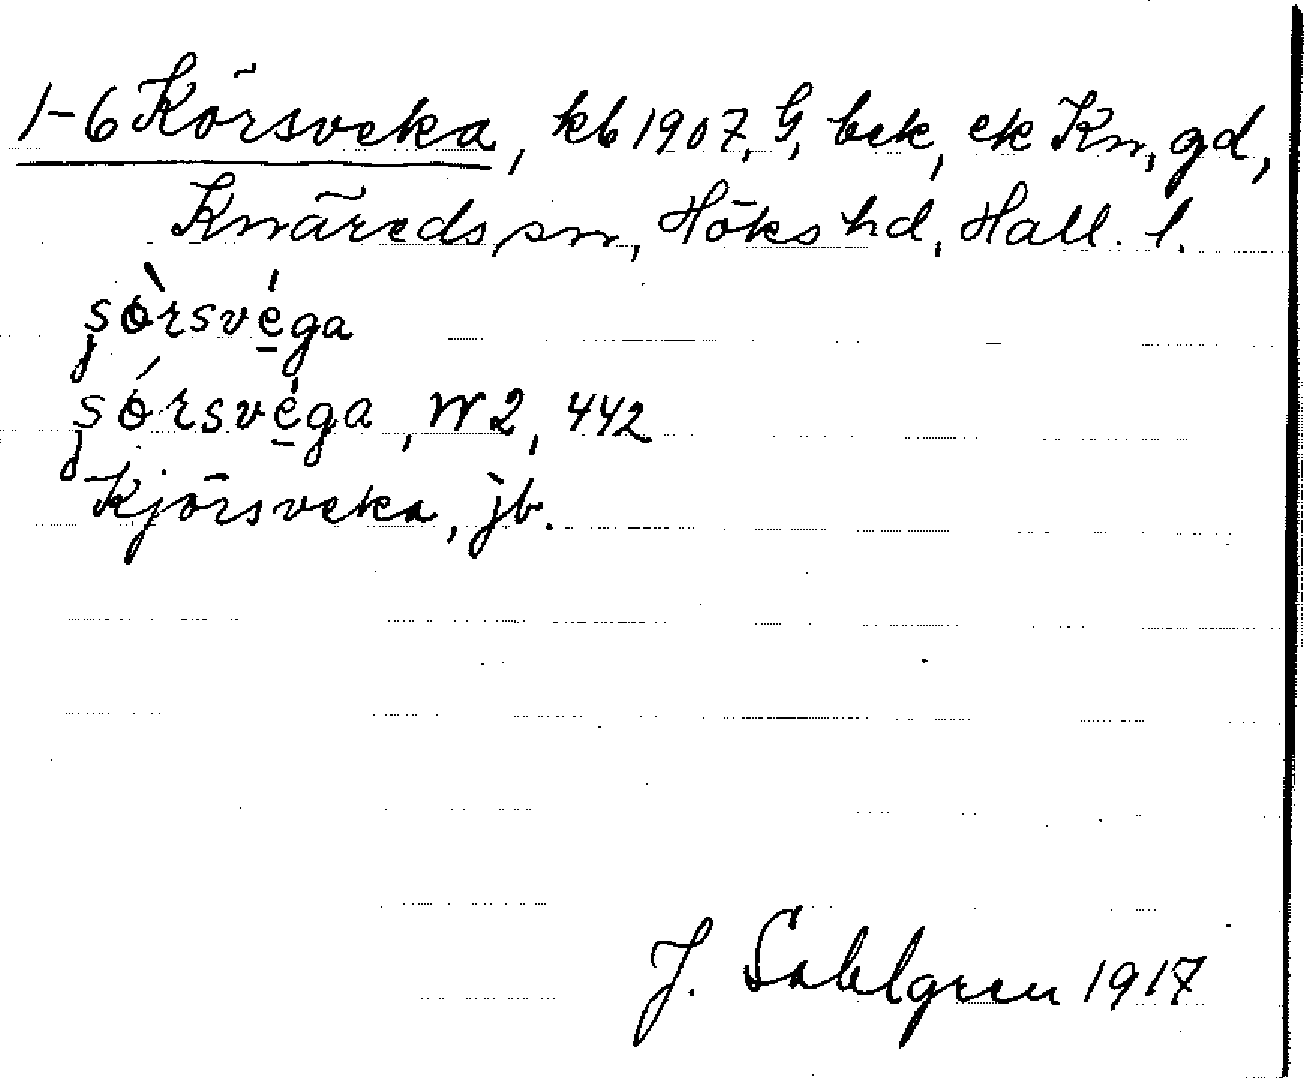 1-6 Körsveka, kb 1907, G, bek, ek Kn, gd,
Knäreds sn, Höks hd, Hall. l.
şòrsvéga
şórsvéga, W 2, 442
Kjörsveka, jb.
J. Sahlgren 1917